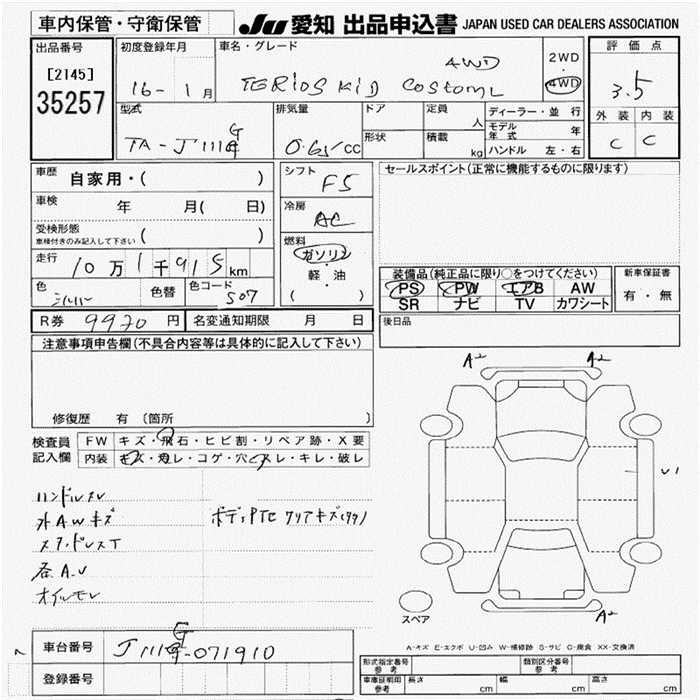 車内保管・守衛保管
JU 愛知 出品申込書 JAPAN USED CAR DEALERS ASSOCIATION
出品番号
[2145]
35257
初度登録年月
16-1月
車名・グレード
4WD
TERIOS KID COSTOM L
2WD
・
4WD
評価点
3.5
外装 内装
C C
型式
TA-J111G
排気量
0.65 CC
ドア
形状
定員
人
積載
kg
ディーラー・並行
モデル年式 年
ハンドル 左・右
車歴
自家用・( )
車検
年 月( 日)
受検形態
車検付きのみ記入して下さい ( )
走行
10万1千915km
色
シルバー
色替
色コード
S07
シフト
F5
冷房
AC
燃料
ガソリン
・
軽・油
( )
セールスポイント(正常に機能するものに限ります)
装備品(純正品に限り○をつけてください)
PS PW エアB AW
SR ナビ TV カワシート
新車保証書
有・無
後日品
R券 9970円 名変通知期限 月 日
注意事項申告欄(不具合内容等は具体的に記入して下さい)
修復歴 有(箇所 )
検査員
記入欄
FW キズ・飛石・ヒビ割・リペア跡・X要
内装 キズ・汚レ・コゲ・穴・スレ・キレ・破レ
ハンドルスレ
外AWキズ
ボディPTE クリアキズ
各A.U
オイルモレ
A2 A2
U1
A2
スペア
A-キズ E-エクボ U-凹み W-補修跡 S-サビ C-腐食 XX-交換済
車台番号
J111G-071910
登録番号
形式指定番号
参考
類別区分番号
参考
車庫証明用
参考
長さ cm
幅 cm
高さ cm